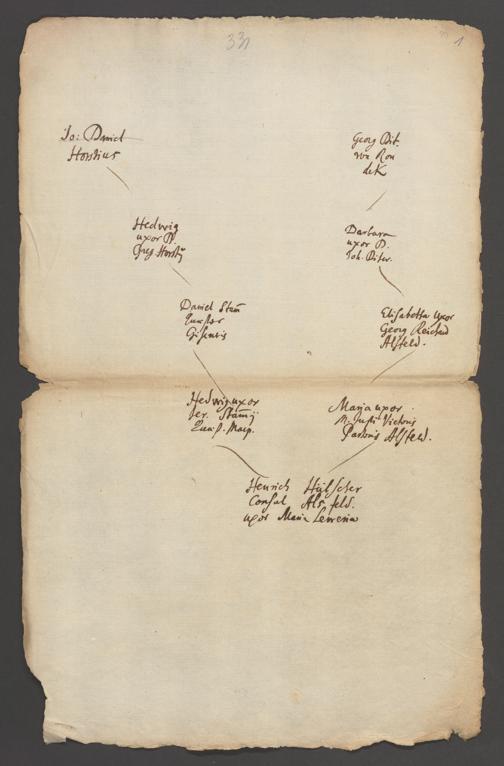 331
1
Jo: Daniel
Horstius
Georg Dit.
von Ron
dek
Hedwig
uxor D.
Greg Horstij
Barbara
uxor D.
Joh. Piter.
Daniel Stam
Quæstor
Gisensis
Elisabetha uxor
Georg Reichard
Alsfeld.
Hedwig uxor
Jer. Stamij
Quæst. Marp.
Maria uxor
M. Justi Vietoris
Pastoris Alsfeld.
Henrich Hülscher
Consul Alsfeld.
uxor Maria